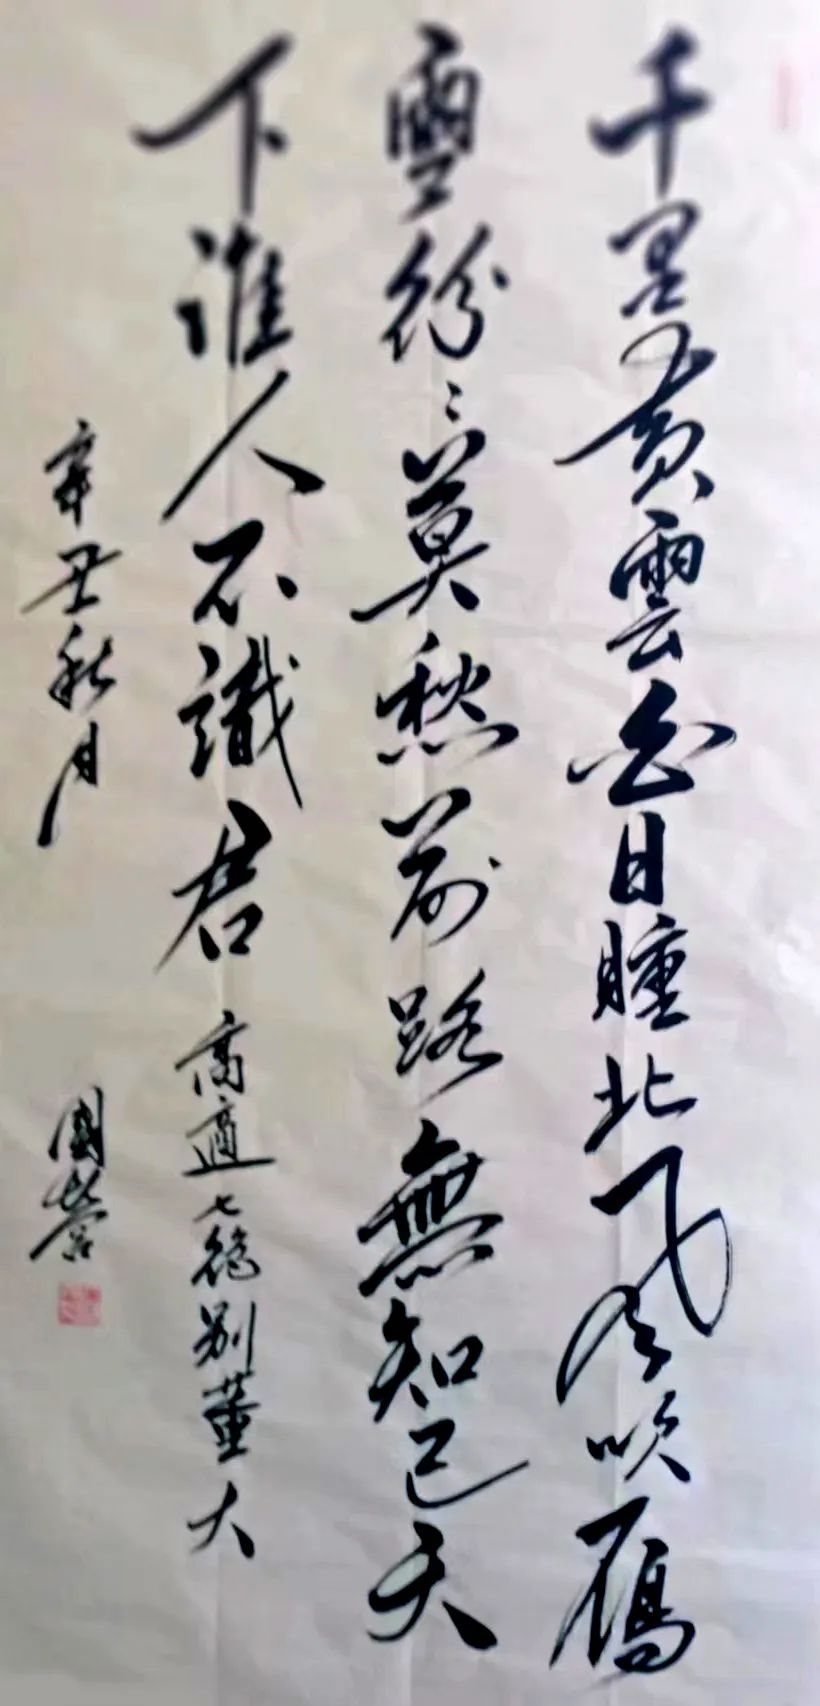 千里黃雲白日曛北風吹鴈
雪紛〻莫愁前路無知己天
下誰人不識君 高適七絕別董大
辛丑秋月 國